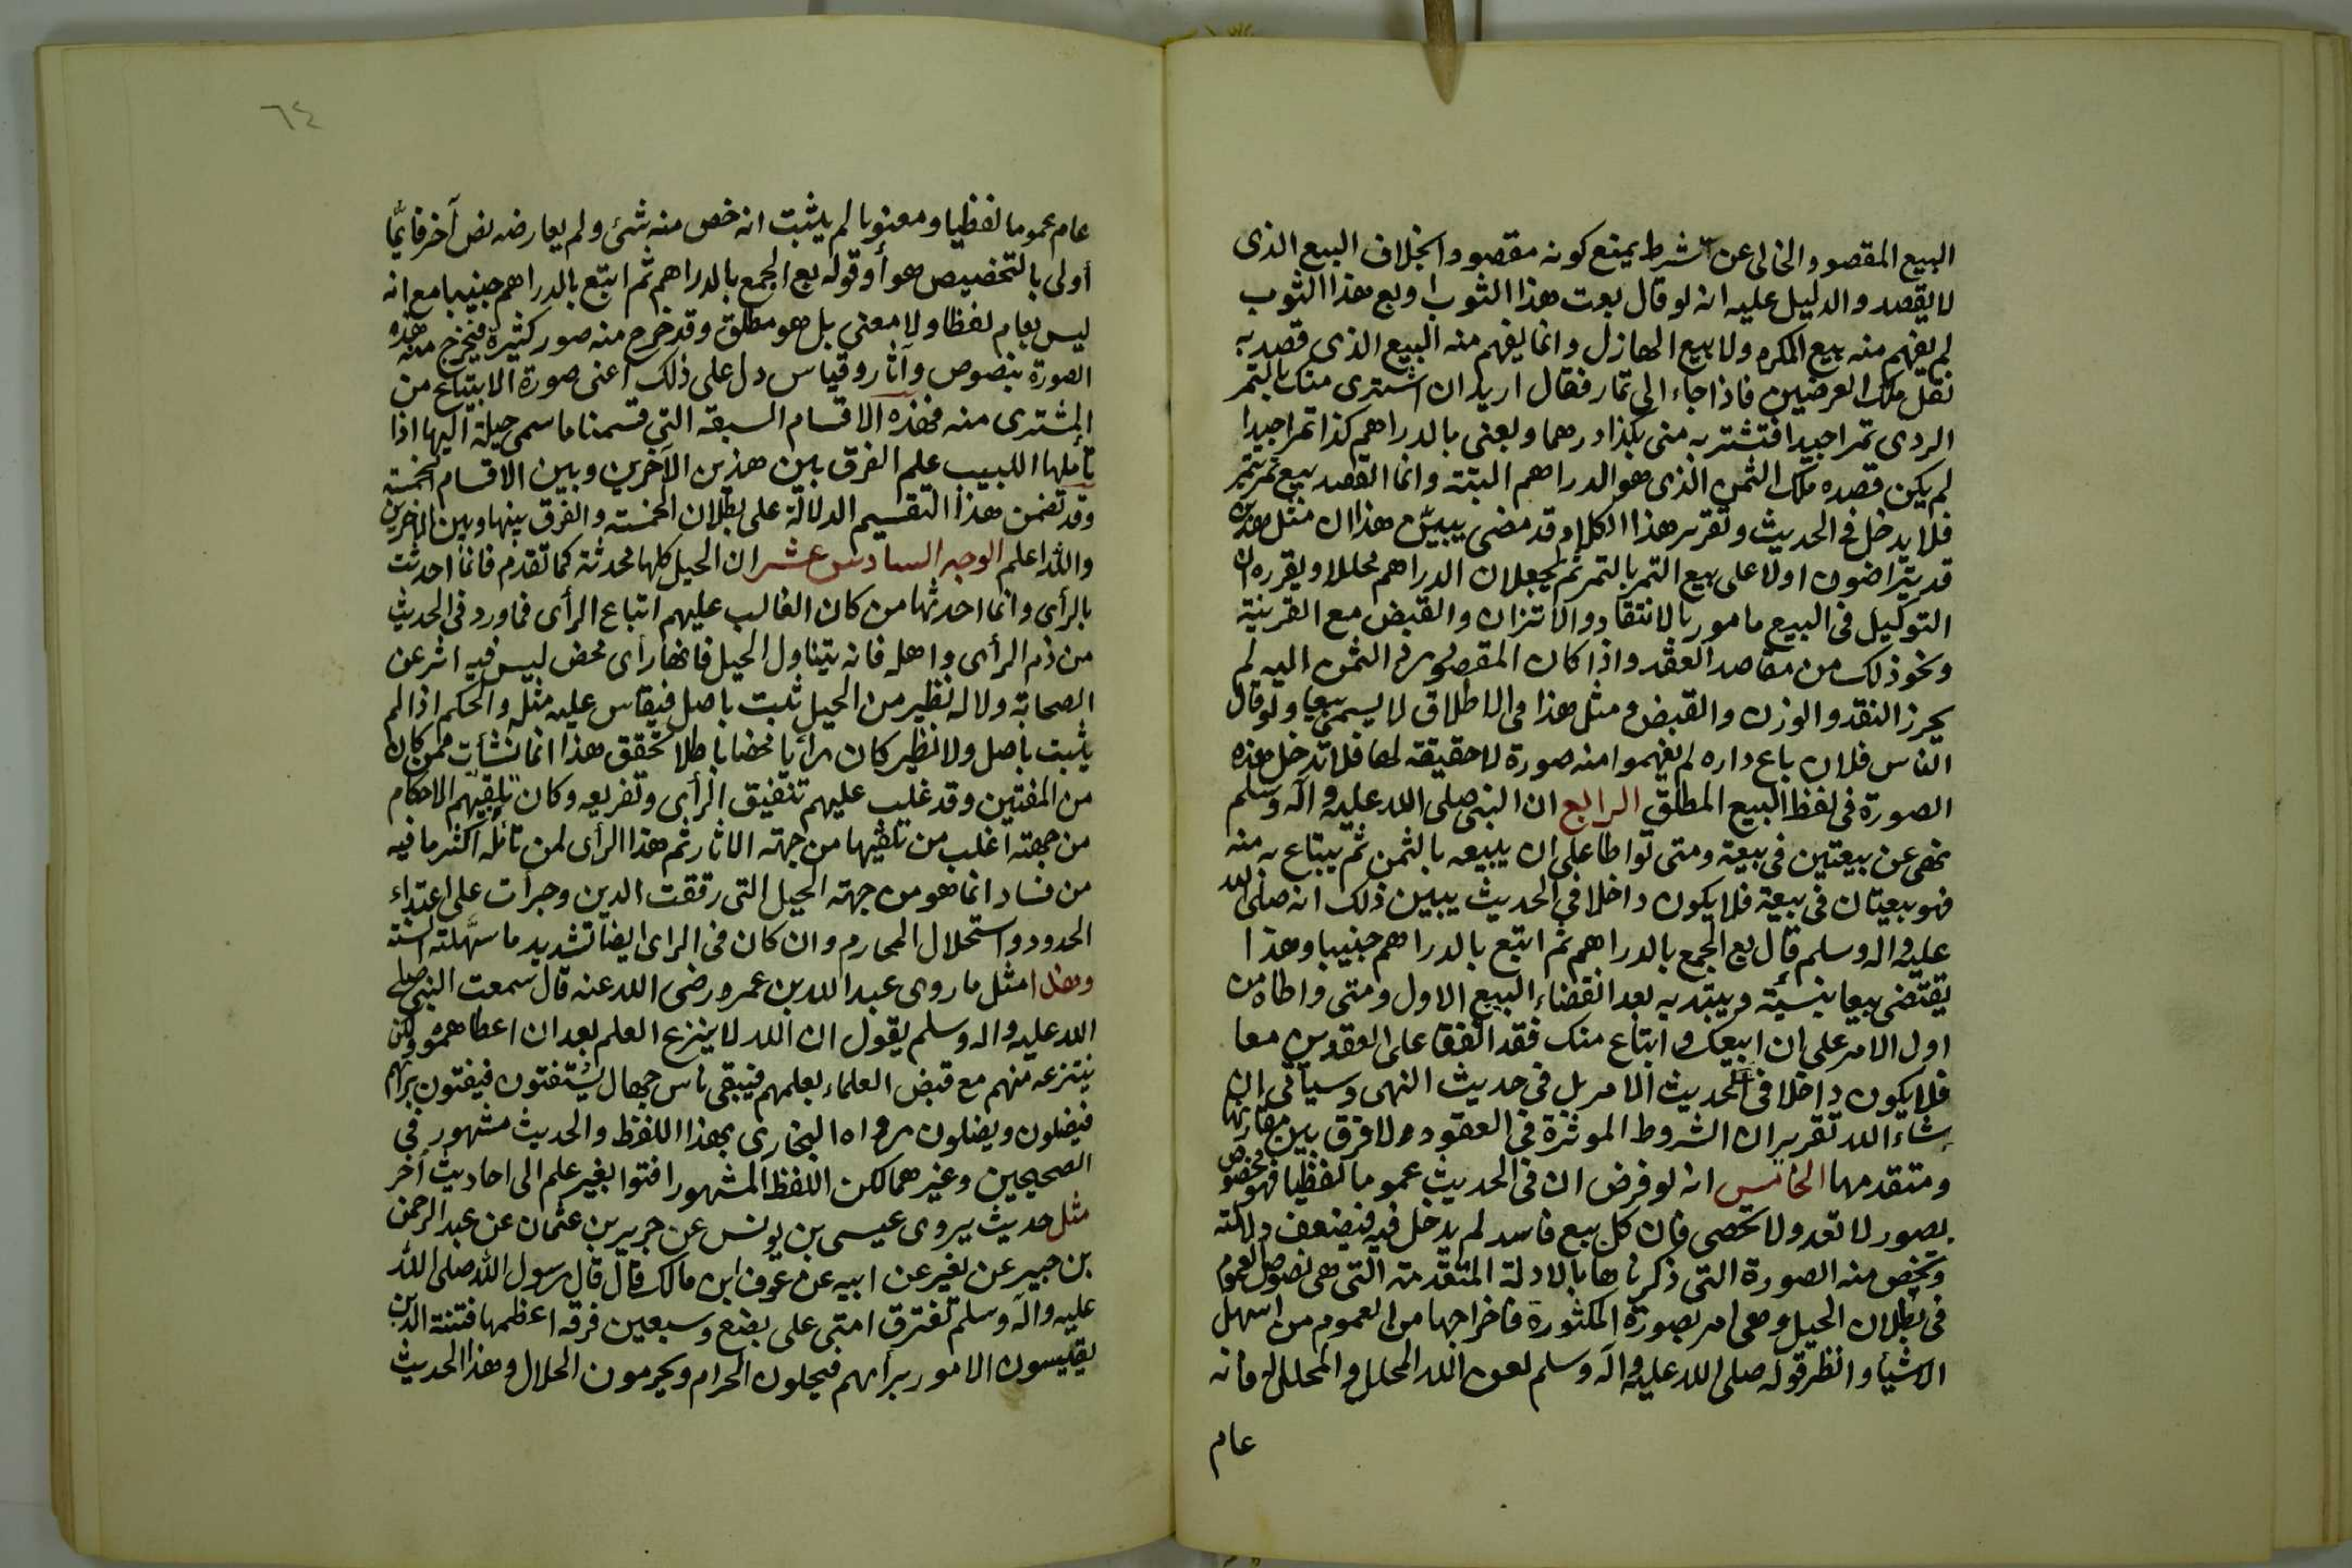 البيع المقصود الخالى عن شرط يمنع كونه مقصودا بخلاف البيع الذى
لا يقصد والدليل عليه انه لو قال بعت هذا الثوب او بع هذا الثوب
لم يفهم منه بيع المكره ولا بيع الهازل وانما يفهم منه البيع الذى قصد به
نقل ملك العوضين فاذا جاء الى تمار فقال اريد ان اشترى منك بالتمر
الردى تمرا جيدا فتشتريه منى بكذا درهما وبعنى بالدراهم كذا تمرا جيدا
لم يكن قصده ملك الثمن الذى هو الدراهم البتة وانما القصد بيع تمر بتمر
فلا يدخل فى الحديث وتقرير هذا الكلام قد مضى يبين هذا ان مثل هذين
قد يتراضون اولا على بيع التمر بالتمر ثم يجعلان الدراهم محللا ويقرره ان
التوكيل فى البيع مامور بالانتقاد والاتزان والقبض مع القرينة
ونحو ذلك من مقاصد العقد واذا كان المقصود رد الثمن اليه لم
يحرز النقد والوزن والقبض ومثل هذا فى الاطلاق لا يسمى بيعا ولو قال
الناس فلان باع داره لم يفهموا منه صورة لا حقيقة لها فلا تدخل هذه
الصورة فى لفظ البيع المطلق الرابع ان النبى صلى الله عليه وآله وسلم
نهى عن بيعتين فى بيعة ومتى تواطا على ان يبيعه بالثمن ثم يبتاع به منه
فهو بيعتان فى بيعة فلا يكون داخلا فى الحديث يبين ذلك انه صلى الله
عليه واله وسلم قال بع الجمع بالدراهم ثم ابتع بالدراهم جنيبا وهذا
يقتضى بيعا ينشئه ويبتديه بعد انقضاء البيع الاول ومتى واطاه من
اول الامر على ان ابيعك وابتاع منك فقد اتفقا على العقدين معا
فلا يكون داخلا فى الحديث الامر بل فى حديث النهى وسيأتى ان
شاء الله تقرير ان الشروط الموثرة فى العقود لا فرق بين مقارنها
ومتقدمها الخامس انه لو فرض ان فى الحديث عموما لفظيا فهو مخصوص
بصور لا تعد ولا تحصى فان كل بيع فاسد لم يدخل فيه فيضعف دلالته
وتخص منه الصورة التى ذكرناها بالادلة المتقدمة التى هى نصوص العموم
فى بطلان الحيل وهى امر بصورة المكثورة فاخراجها من العموم من اسهل
الاشياء وانظر قوله صلى الله عليه وآله وسلم لعن الله المحلل والمحلل له فانه
عام
٦٤
عام عموما لفظيا ومعنويا لم يثبت انه خص منه شئ ولم يعارضه نص آخر فايما
أولى بالتخصيص هو أو قوله بع الجمع بالدراهم ثم ابتع بالدراهم جنيبا مع انه
ليس بعام لفظا ولا معنى بل هو مطلق وقد خرج منه صور كثيرة فيخرج منه هذه
الصورة بنصوص وآثار وقياس دل على ذلك اعنى صورة الابتياع من
المشترى منه فهذه الاقسام السبعة التى قسمنا ما سمى حيلة اليها اذا
تأملها اللبيب علم الفرق بين هذين الآخرين وبين الاقسام الخمسة
وقد تضمن هذا التقسيم الدلالة على بطلان الخمسة والفرق بينها وبين الاخرين
والله اعلم الوجه السادس عشر ان الحيل كلها محدثة كما تقدم فانما احدثت
بالرأى وانما احدثها من كان الغالب عليهم اتباع الرأى فما ورد فى الحديث
من ذم الرأى واهله فانه يتناول الحيل فانها رأى محض ليس فيه اثر عن
الصحابة ولا له نظير من الحيل ثبت باصل فيقاس عليه مثله والحكم اذا لم
يثبت باصل ولا نظير كان رأيا محضا باطلا تحقق هذا انما نشأت ممن كان
من المفتين وقد غلب عليهم تنفيق الرأى وتفريعه وكان تلقيهم الاحكام
من جهته اغلب من تلقيها من جهة الاثار ثم هذا الرأى لمن تأمله اكثر ما فيه
من فساد انما هو من جهة الحيل التى رققت الدين وجرأت على اعتداء
الحدود واستحلال المحارم وان كان فى الراى ايضا تشديد ما سهلته السنة
وهذا مثل ما روى عبد الله بن عمرو رضى الله عنه قال سمعت النبى صلى
الله عليه واله وسلم يقول ان الله لا ينزع العلم بعد ان اعطاهموه ولكن
ينتزعه منهم مع قبض العلماء بعلمهم فيبقى ناس جهال يستفتون فيفتون برأيهم
فيضلون ويضلون رواه البخارى بهذا اللفظ والحديث مشهور فى
الصحيحين وغيرهما لكن اللفظ المشهور افتوا بغير علم الى احاديث أخر
مثل حديث يروى عيسى بن يونس عن جرير بن عثمان عن عبد الرحمن
بن جبير عن نفير عن ابيه عن عوف ابن مالك قال قال رسول الله صلى الله
عليه وآله وسلم تفترق امتى على بضع وسبعين فرقه اعظمها فتنة الذين
يقيسون الامور برأيهم فيحلون الحرام ويحرمون الحلال وهذا الحديث